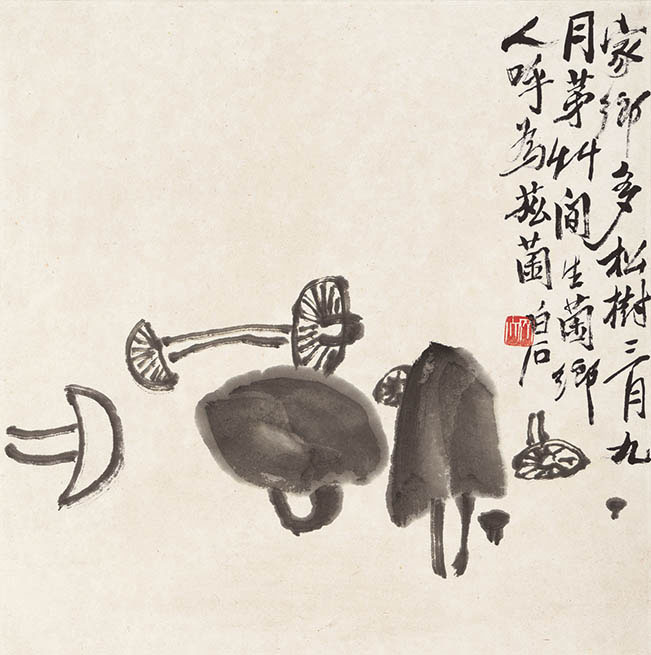 家鄉多松樹三月九
月茅艸間生菌鄉
人呼為菌
白石